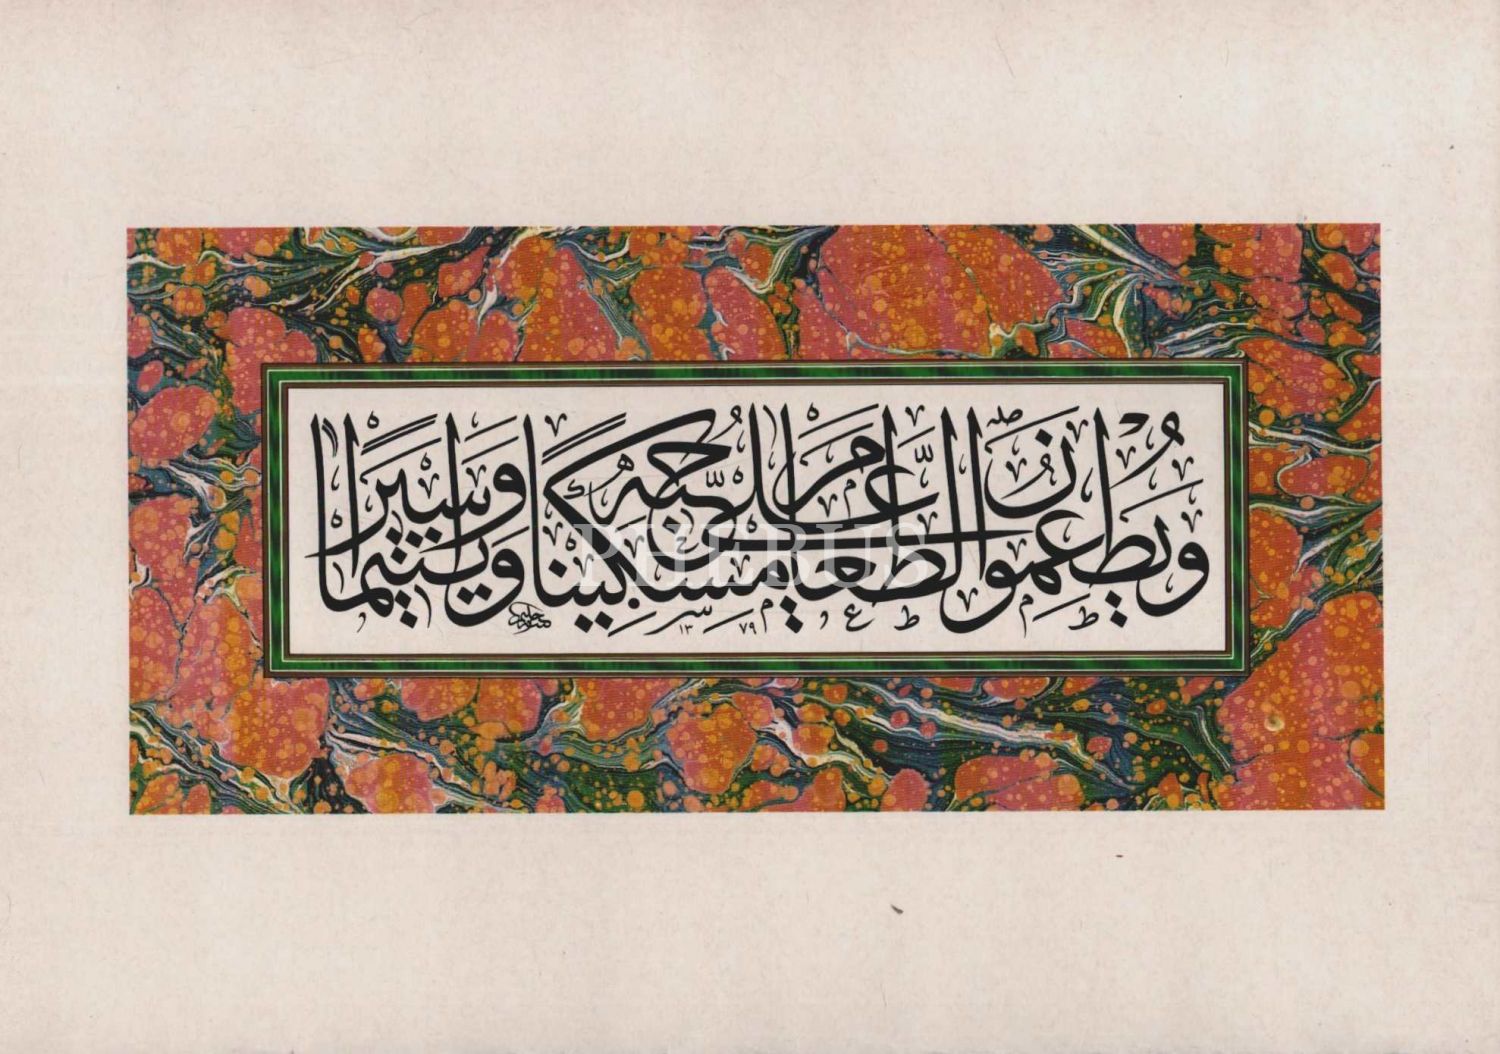 وَيُطْعِمُونَ الطَّعَامَ عَلَى حُبِّهِ مِسْكِينًا وَيَتِيمًا وَأَسِيرًا
١٣٧٩
PHEBUS